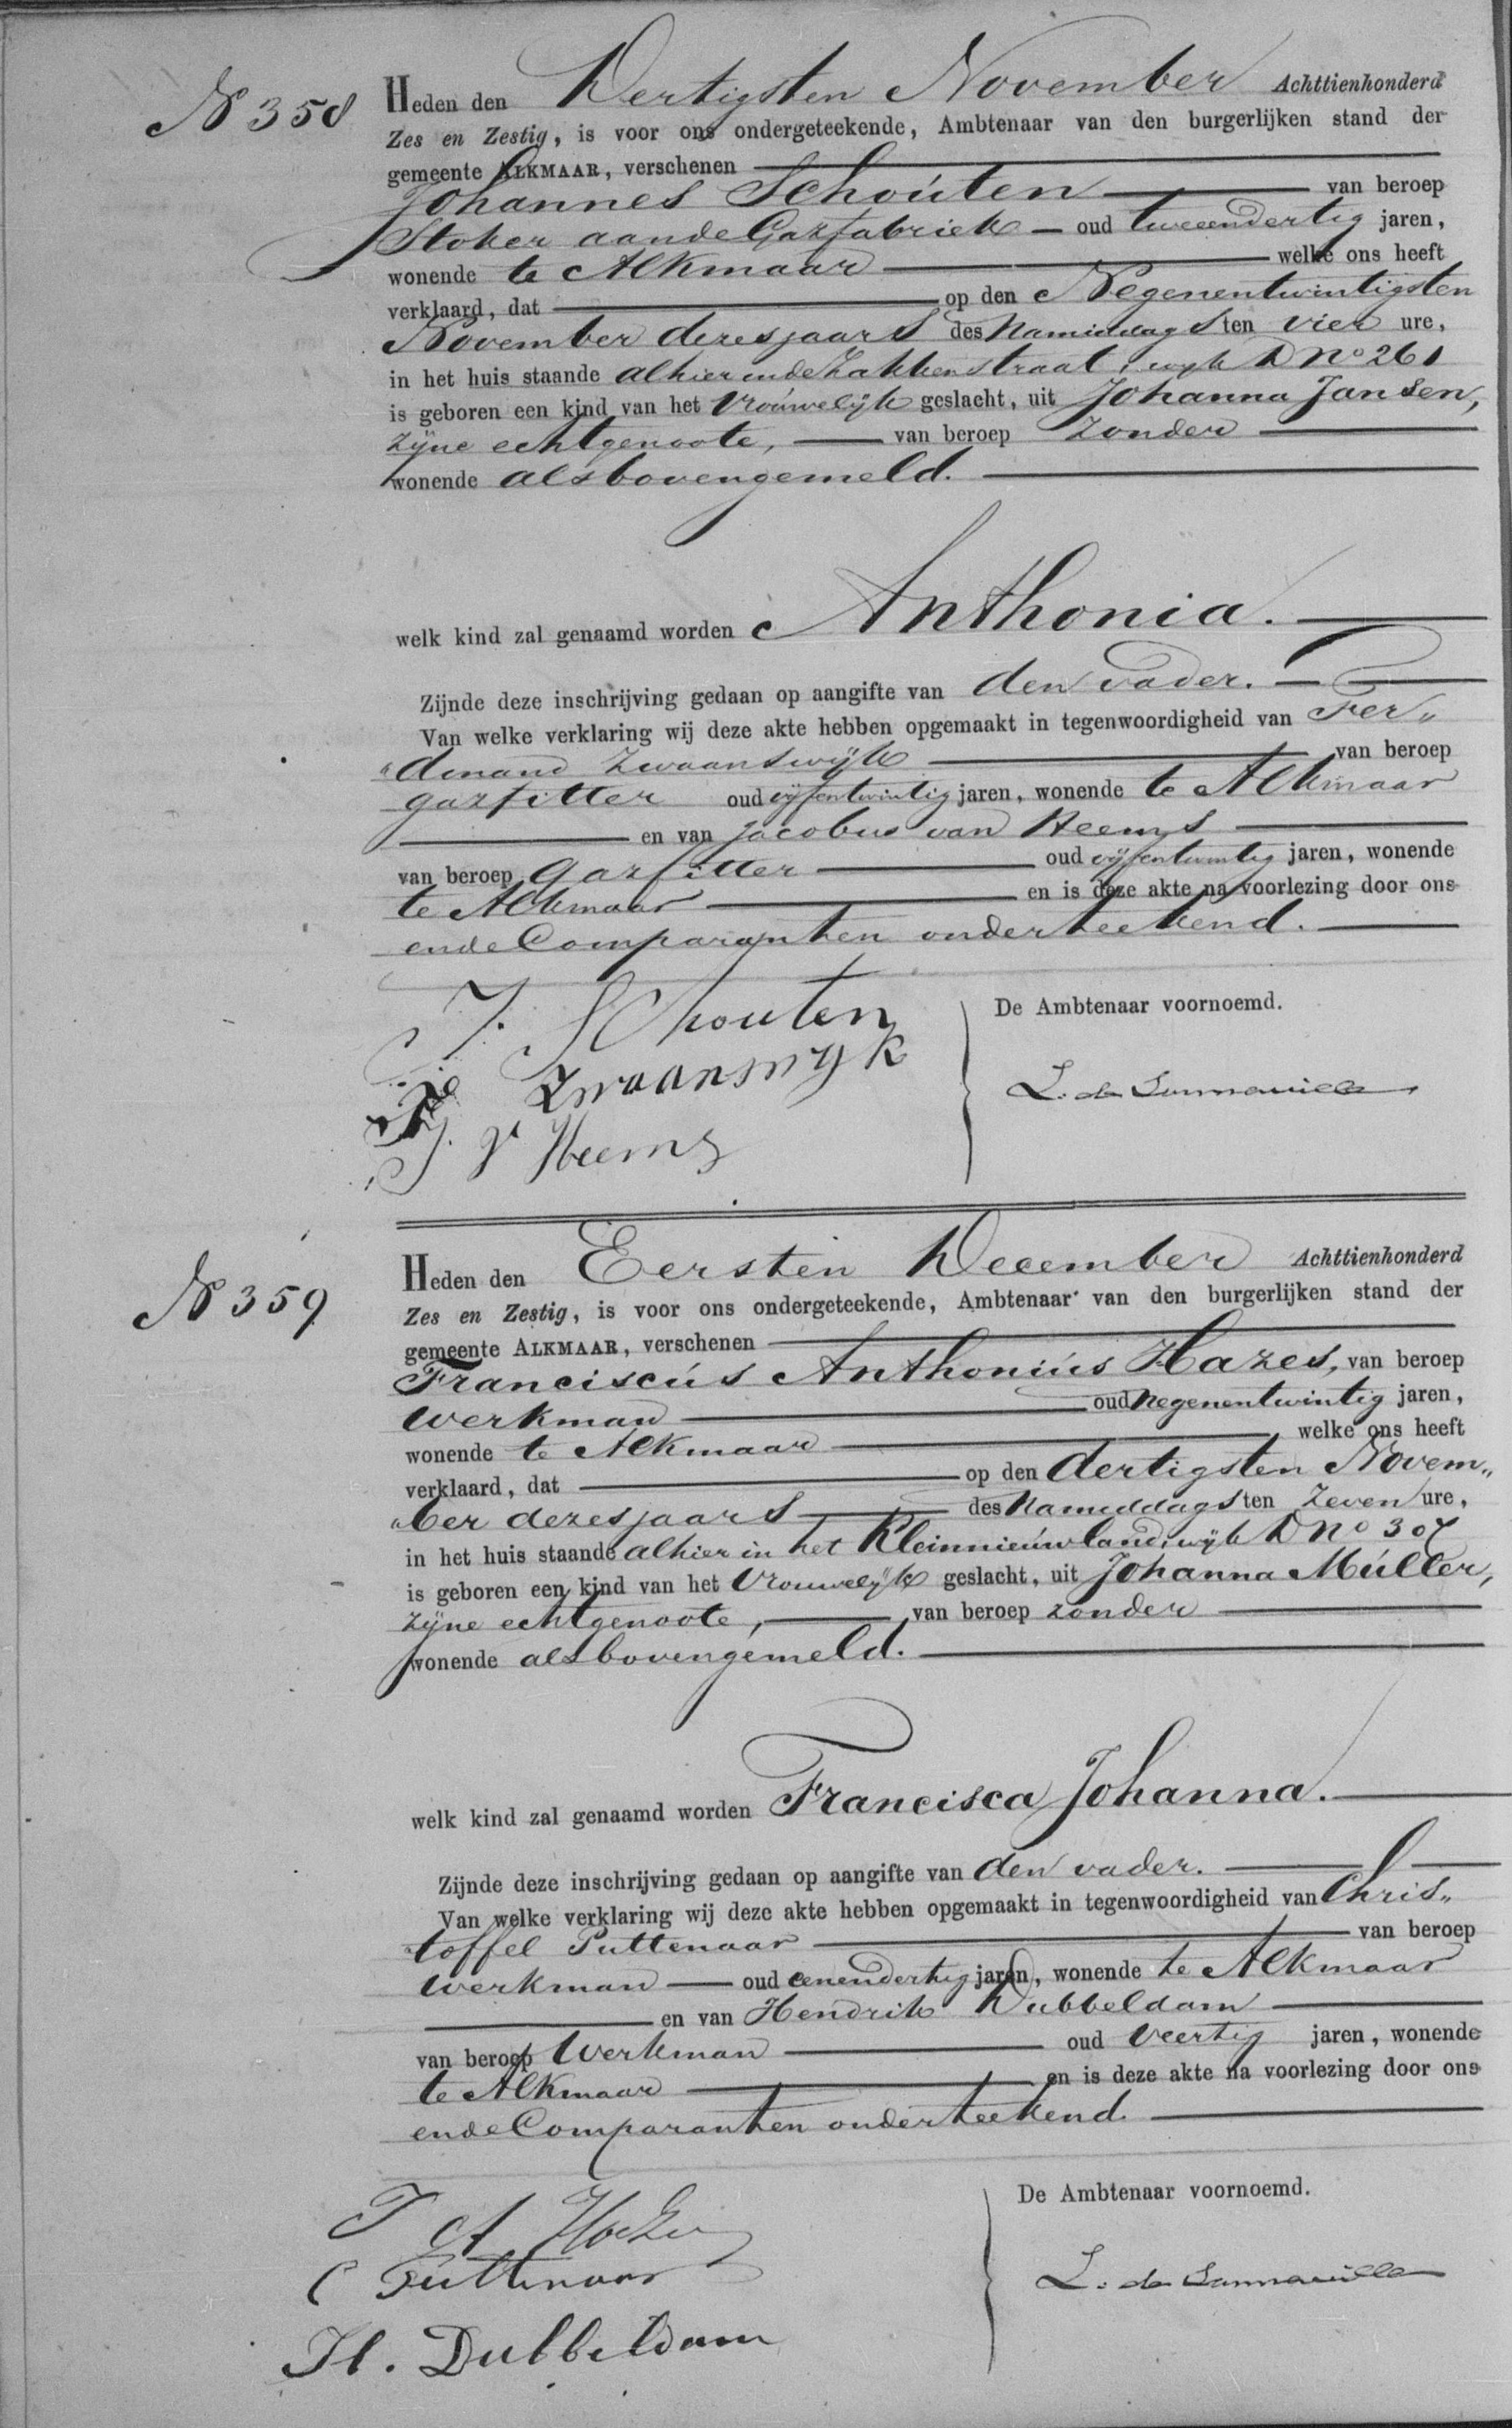 N 358
Heden den Dertigsten November Achttienhonderd
Zes en Zestig, is voor ons ondergeteekende, Ambtenaar van den burgerlijken stand der
gemeente ALKMAAR, verschenen
Johannes Schoúten van beroep
Stoker aande Gazfabriek oud tweeendertig jaren,
wonende te Alkmaar welke ons heeft
verklaard, dat op den Negenentwintigsten
November dezesjaars des Namiddags ten vier ure,
in het huis staande alhier inde Zakkenstraat, wyk D No 261
is geboren een kind van het Vroúwelijk geslacht, uit Johanna Jansen,
zijne echtgenoote, van beroep zonder
wonende als bovengemeld.
welk kind zal genaamd worden Anthonia.
Zijnde deze inschrijving gedaan op aangifte van den vader.
Van welke verklaring wij deze akte hebben opgemaakt in tegenwoordigheid van Fer„
„dinand Zwaanswijk van beroep
gazfitter oud vijfentwintig jaren, wonende te Alkmaar
en van Jacobus van Heems
van beroep Gazfitter oud vijfentwintig jaren, wonende
te Alkmaar en is deze akte na voorlezing door ons
ende Comparanten onderteekend.
J. Schouten
De Ambtenaar voornoemd.
F Zwaanswyk
L. de
J. v Heems
N 359
Heden den Eersten December Achttienhonderd
Zes en Zestig, is voor ons ondergeteekende, Ambtenaar van den burgerlijken stand der
gemeente ALKMAAR, verschenen
Franciscús Anthoniús Hazes, van beroep
werkman oud negenentwintig jaren,
wonende te Alkmaar welke ons heeft
verklaard, dat op den dertigsten Novem„
„ber dezesjaars des Namiddags ten zeven ure,
in het huis staande alhier in het Kleinnieúwland, wijk D No 307
is geboren een kind van het Vrouwelijk geslacht, uit Johanna Múller,
zijne echtgenoote, van beroep zonder
wonende als bovengemeld.
welk kind zal genaamd worden Francisca Johanna.
Zijnde deze inschrijving gedaan op aangifte van den vader.
Van welke verklaring wij deze akte hebben opgemaakt in tegenwoordigheid van Chris„
„toffel Puttenaar van beroep
werkman oud eenendertig jaren, wonende te Alkmaar
en van Hendrik Dubbeldam
van beroep Werkman oud Veertig jaren, wonende
te Alkmaar en is deze akte na voorlezing door ons
ende Comparanten onderteekend.
De Ambtenaar voornoemd.
F A Hazes
C Puttenaar
L. de
H. Dubbeldam